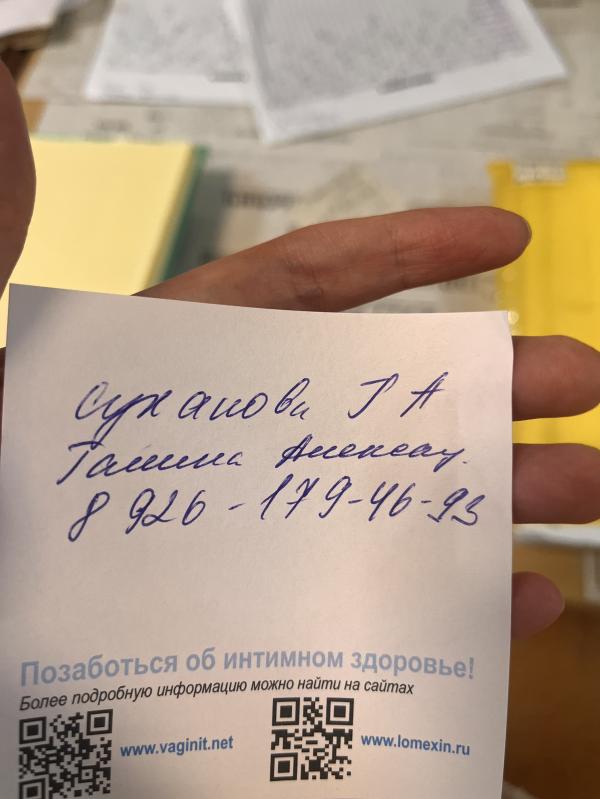 Суханова Г А
Галина Александ.
8 926-179-46-93
Позаботься об интимном здоровье!
Более подробную информацию можно найти на сайтах
www.vaginit.net
www.lomexin.ru